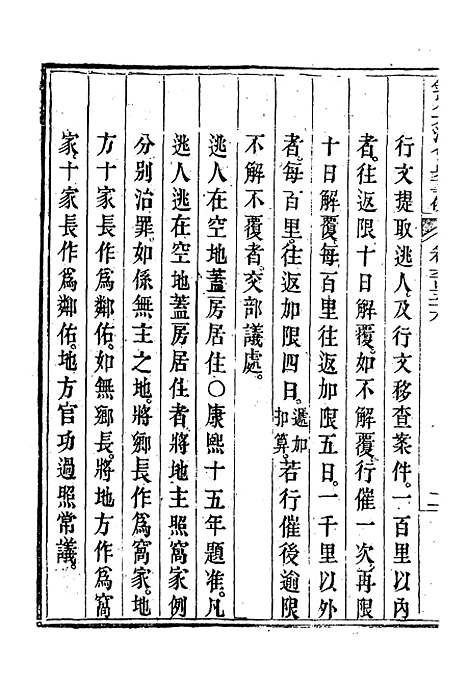 行文提取逃人。及行文移查案件。一百里以內
者。往返限十日解覆。如不解覆。行催一次。再限
十日解覆。每百里往返加限五日。一千里以外
者。每百里。往返加限四日。遞加扣算。若行催後逾限
不解不覆者。交部議處。
逃人在空地蓋房居住○康熙十五年題准。凡
逃人逃在空地蓋房居住者。將地主照窩家例
分別治罪。如係無主之地。將鄉長作爲窩家。地
方十家長作爲鄰佑。如無鄉長。將地方作爲窩
家。十家長作爲鄰佑。地方官功過照常議。